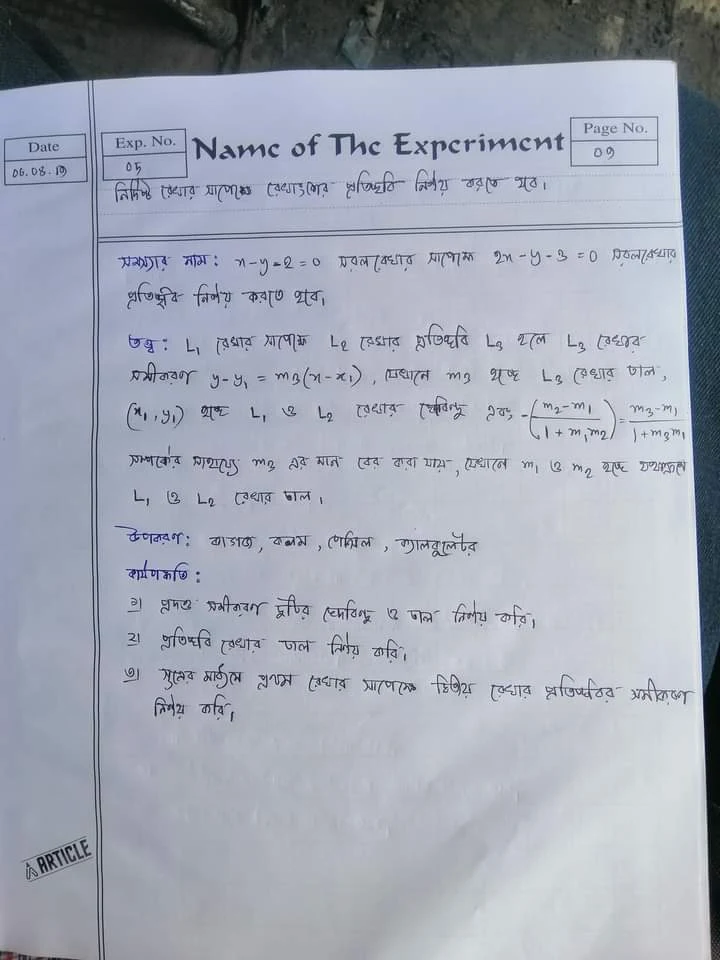 Date
06.08.19
Exp. No.
05
Name of The Experiment
Page No.
09
নির্দিষ্ট রেখার সাপেক্ষে রেখাংশের প্রতিচ্ছবি নির্ণয় করতে হবে।
সমস্যার নাম: x-y-2=0 সরলরেখার সাপেক্ষে 2x-y-3=0 সরলরেখার
প্রতিচ্ছবি নির্ণয় করতে হবে।
তত্ত্ব: L₁ রেখার সাপেক্ষে L₂ রেখার প্রতিচ্ছবি L₃ হলে L₃ রেখার
সমীকরণ y-y₁ = m₃(x-x₁), যেখানে m₃ হচ্ছে L₃ রেখার ঢাল,
(x₁, y₁) হচ্ছে L₁ ও L₂ রেখার ছেদবিন্দু এবং -((m₂-m₁)/(1+m₁m₂)) = (m₃-m₁)/(1+m₃m₁)
সম্পর্কের সাহায্যে m₃ এর মান বের করা যায়, যেখানে m₁ ও m₂ হচ্ছে যথাক্রমে
L₁ ও L₂ রেখার ঢাল।
উপকরণ: কাগজ, কলম, পেন্সিল, ক্যালকুলেটর
কার্যপদ্ধতি:
১) প্রদত্ত সমীকরণ দুটির ছেদবিন্দু ও ঢাল নির্ণয় করি।
২) প্রতিচ্ছবি রেখার ঢাল নির্ণয় করি।
৩) সূত্রের মাধ্যমে প্রথম রেখার সাপেক্ষে দ্বিতীয় রেখার প্রতিচ্ছবির সমীকরণ
নির্ণয় করি।
ARTICLE